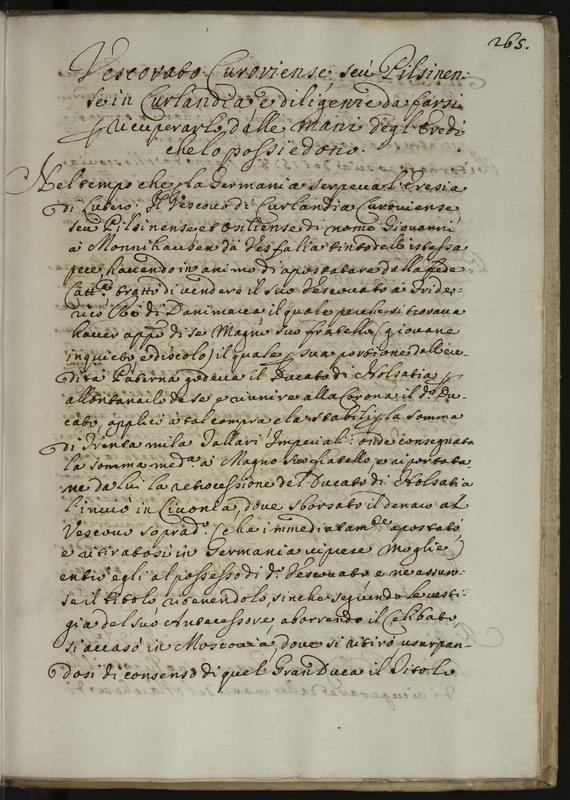 265.
Vescovato Curoviense seù Pilsinen:
se in Curlandia e diligenze da farsi
p ricuperarlo dalle mani degl'Eredi
che lo possiedono.
Nel tempo che p la Germania serpeva l'Eresia
di Lutero: Il Vescovo di Curlandia Curoviense
seu Pilsinense et Osiliense di nome Giovanni
à Monnikausen da Vesfalia tinto della istessa
pece havendo in animo di apostatare dalla fede
Catt.ca trattò di vendere il suo Vescovato à Fride-
rico Rè di Danimarca il quale perche si trovava
haver app.o di se Magno suo fratello (giovane
inquieto, e discolo) il quale p sua portione dell'ere-
dità Paterna godeva il Ducato di Holsatia p
allontanarlo da se e riunire alla Corona il d.o Du-
cato, applicò à tal compra e la stabilì p la somma
di trenta mila Tallari Imperiali: onde consegnata
la somma med.a à Magno suo fratello, e riportata
ne da lui la retrocessione del Ducato di Holsatia
l'inviò in Livonia, dove sborsato il denaro al
Vescovo soprad.o (che immediatam.te apostatò
e ritiratosi in Germania vi prese moglie)
entrò egli al possesso di d.o Vescovato e ne assun-
se il titolo ritenendolo, sinche seguendo le vesti-
gia del suo Antecessore aborrendo il Celibato,
si accasò in Moscovia, dove si ritirò usurpan-
dosi di consenso di quel Gran Duca il Titolo